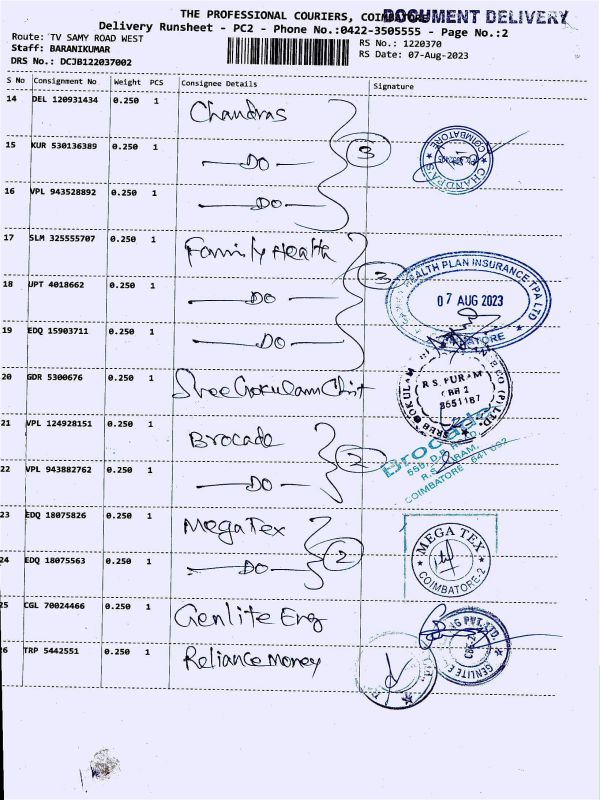 THE PROFESSIONAL COURIERS, COIMBATORE
DOCUMENT DELIVERY
Delivery Runsheet - PC2 - Phone No.:0422-3505555 - Page No.:2
Route: TV SAMY ROAD WEST
Staff: BARANIKUMAR
DRS No.: DCJB122037002
RS No.: 1220370
RS Date: 07-Aug-2023
S No Consignment No. Weight PCS Consignee Details Signature
14 DEL 120931434 0.250 1 Chandras
15 KUR 530136389 0.250 1 —DO—
3
COIMBATORE
CHANDRA'S
16 VPL 943528892 0.250 1 —DO—
17 SLM 325555707 0.250 1 Family Health
3
HEALTH PLAN INSURANCE TPA LTD
07 AUG 2023
18 UPT 4018662 0.250 1 —DO—
19 EDQ 15903711 0.250 1 —DO—
20 GDR 5300676 0.250 1 Sree Gokulam Chit
R.S. PURAM
21 VPL 124928151 0.250 1 Brocade
2
Brocade
COIMBATORE - 641 002
22 VPL 943882762 0.250 1 —DO—
23 EDQ 18075826 0.250 1 Mega Tex
2
MEGA TEX
COIMBATORE-2
24 EDQ 18075563 0.250 1 —DO—
25 CGL 70024466 0.250 1 Genlite Eng
PVT. LTD.
GENLITE
26 TRP 5442551 0.250 1 Reliance Money